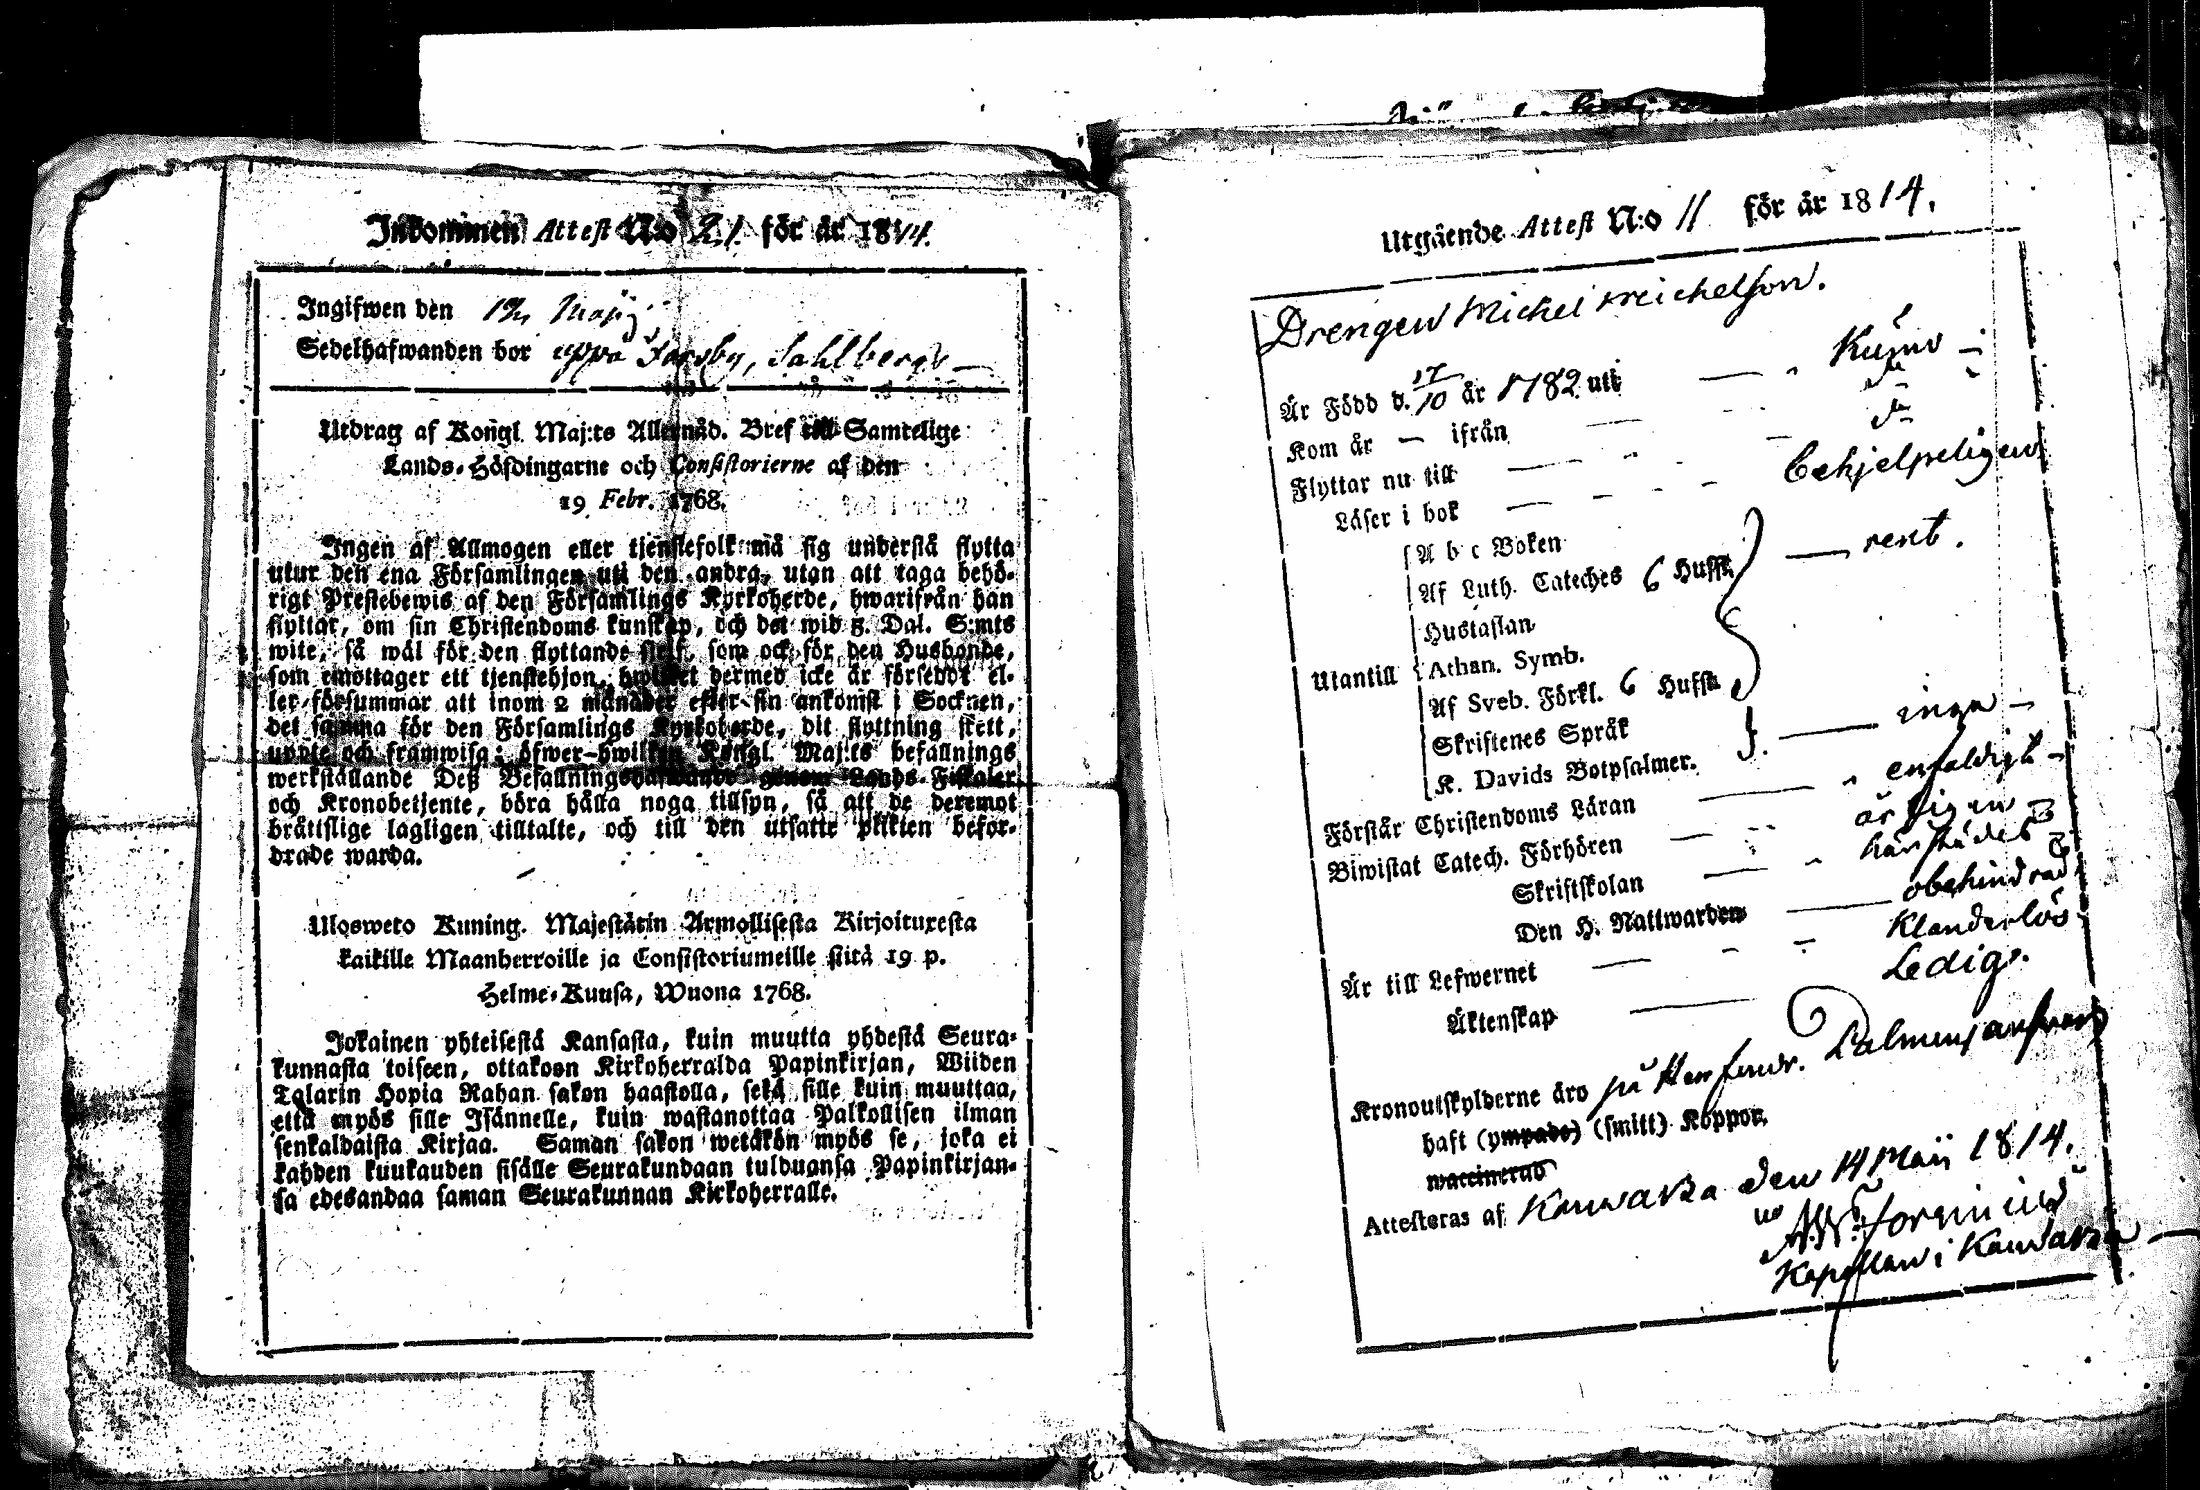 Inkommen Attest N:o 21. för år 1814.
Ingifwen den Maji
Sedelhafwanden bor uppå Forsby, Sahlbergs
Utdrag af Kongl. Maj:ts Allernåd. Bref till Samtelige
Lands-Höfdingarne och Consistorierne af den
19 Febr. 1768.
Ingen af Allmogen eller tjenstefolk må sig understå flytta
utur den ena Församlingen uti den andra, utan att taga behö-
rigt Prestebewis af den Församlings Kyrkoherde, hwarifrån han
flyttar, om sin Christendoms kunskap, och det wid 5. Dal. S:mts
wite, så wäl för den flyttande sielf, som ock för den Husbonde,
som emottager ett tjenstehjon, hwilket dermed icke är försedt el-
ler försummar att inom 2 månader efter sin ankomst i Socknen,
det samma för den Församlings Kyrkoherde, dit flyttning skett,
uppte och framwisa; öfwer hwilken Kongl. Maj:ts befallnings
werkställande Deß Befallningshafwande genom Lands-Fiskaler
och Kronobetjente, böra hålla noga tillsyn, så att de deremot
bråttslige lagligen tilltalte, och till den utsatte plikten befor-
drade warda.
Ulosweto Kuning. Majestätin Armollisesta Kirjoituxesta
kaikille Maanherroille ja Consistoriumeille siitä 19 p.
Helme-Kuusa, Wuona 1768.
Jokainen yhteisestä Kansasta, kuin muutta yhdestä Seura-
kunnasta toiseen, ottakoon Kirkoherralda Papinkirjan, Wiiden
Talarin Hopia Rahan sakon haastolla, sekä sille kuin muuttaa,
että myös sille Isännelle, kuin wastanottaa Palkollisen ilman
senkaldaista Kirjaa. Saman sakon wetäkön myös se, joka ei
kahden kuukauden sisälle Seurakundaan tulduansa Papinkirjan-
sa edesandaa saman Seurakunnan Kirkoherralle.
Utgående Attest N:o 11 för år 1814.
Drengen Michel Michelson.
Är Född d. 17/10 år 1782 uti Kumo
Kom år — ifrån d:o
Flyttar nu till d:o
Läser i bok behjelpeligen
A b c Boken
Af Luth. Cateches 6 Hufst. rent.
Hustaflan
Utantill Athan. Symb.
Af Sveb. Förkl. 6 Hufst.
Skriftenes Språk inga
K. Davids Botpsalmer.
Förstår Christendoms Läran enfaldigt
Biwistat Catech. Förhören
Skriftskolan härstädes
Den H. Nattwarden obehindrad
Är till Lefwernet Klanderlös
Äktenskap Ledig.
Kronoutskylderne äro på
haft (ympade) (smitt) Koppor.
waccinerad
Attesteras af Kauwatza den 14 Maij 1814.
Kapellan i Kauwatza